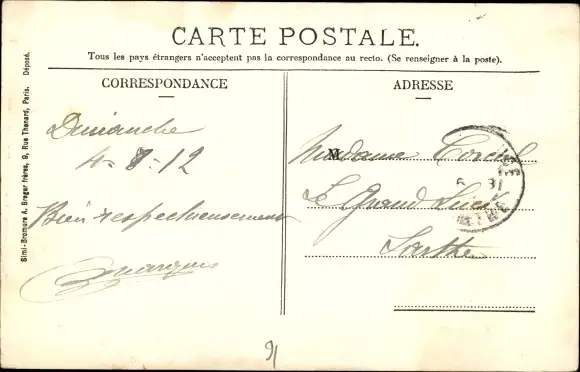 CARTE POSTALE.
Tous les pays étrangers n'acceptent pas la correspondance au recto. (Se renseigner à la poste).
CORRESPONDANCE
ADRESSE
Simi-Bromure A. Breger frères, 9, Rue Thenard, Paris. Déposé.
Dimanche
4-8-12
Bien respectueusement
Madame
Le Grand Lucé
Sarthe
91